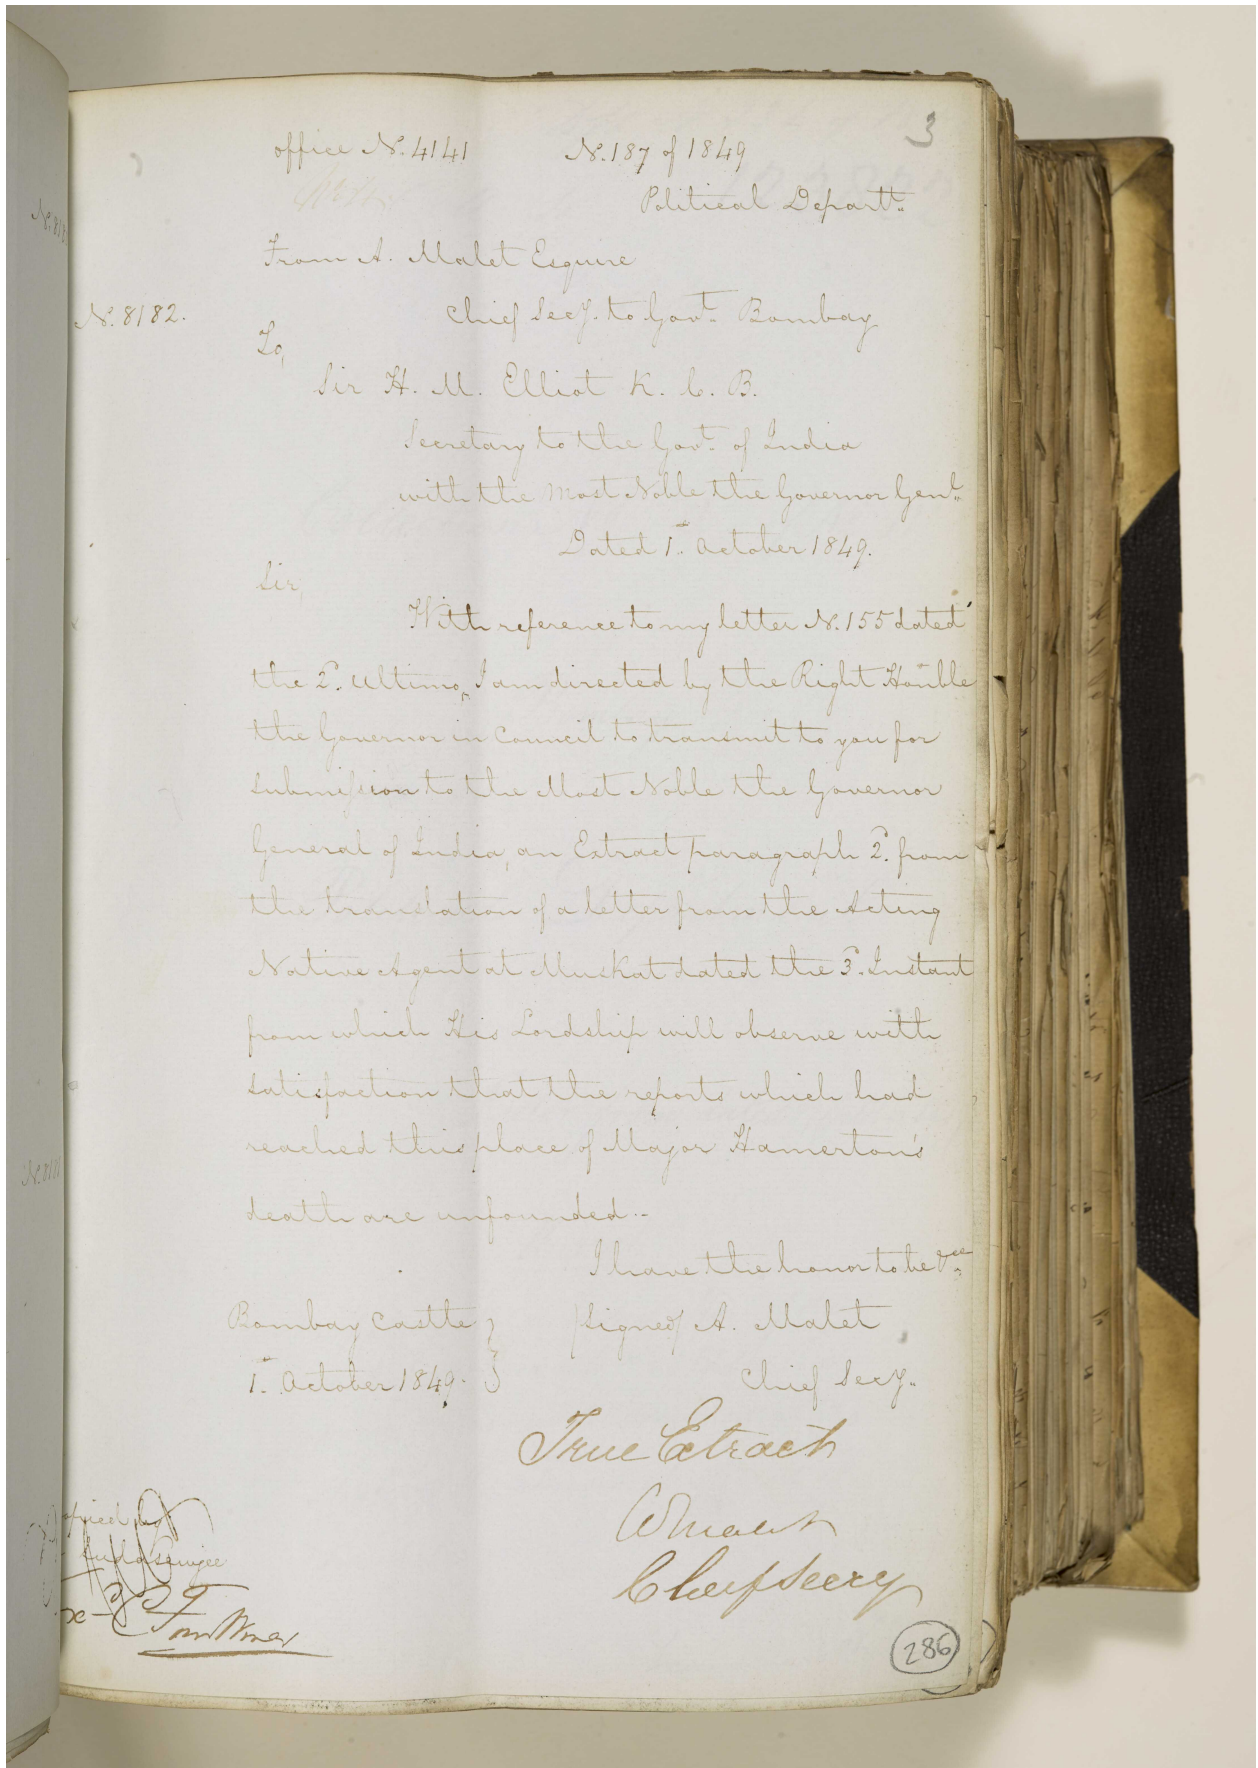 3
office No. 4141 No. 187 of 1849
Political Departt.
From A. Malet Esquire
No. 8182.
Chief Secy. to Govt. Bombay
To,
Sir H. M. Elliot K. C. B.
Secretary to the Govt. of India
with the Most Noble the Governor Genl.
Dated 1st. October 1849.
Sir,
With reference to my letter No. 155 dated
the 2d. Ultimo, I am directed by the Right Honble
the Governor in Council to transmit to you for
submission to the Most Noble the Governor
General of India, an Extract paragraph 2d. from
the translation of a letter from the Acting
Native Agent at Muskat dated the 3d. Instant
from which His Lordship will observe with
satisfaction that the reports which had
reached this place of Major Hamerton's
death are unfounded..
I have the honor to be &ca
Bombay Castle } Signed/ A. Malet
1st. October 1849. Chief Secy.
True Extract
AMalet
Chief Secry
Copied by
286